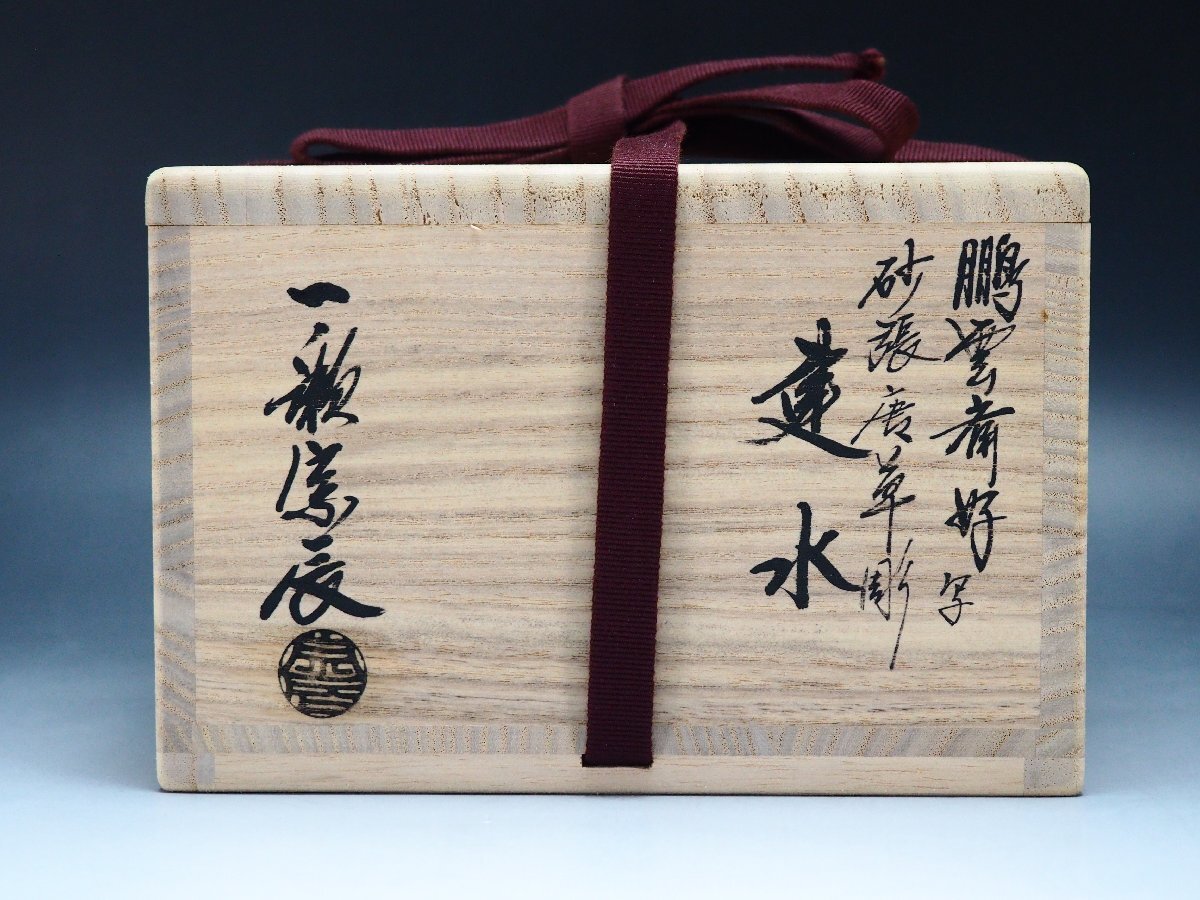 鵬雲斎好写
砂張唐草彫
建水
一瓢斎宗辰